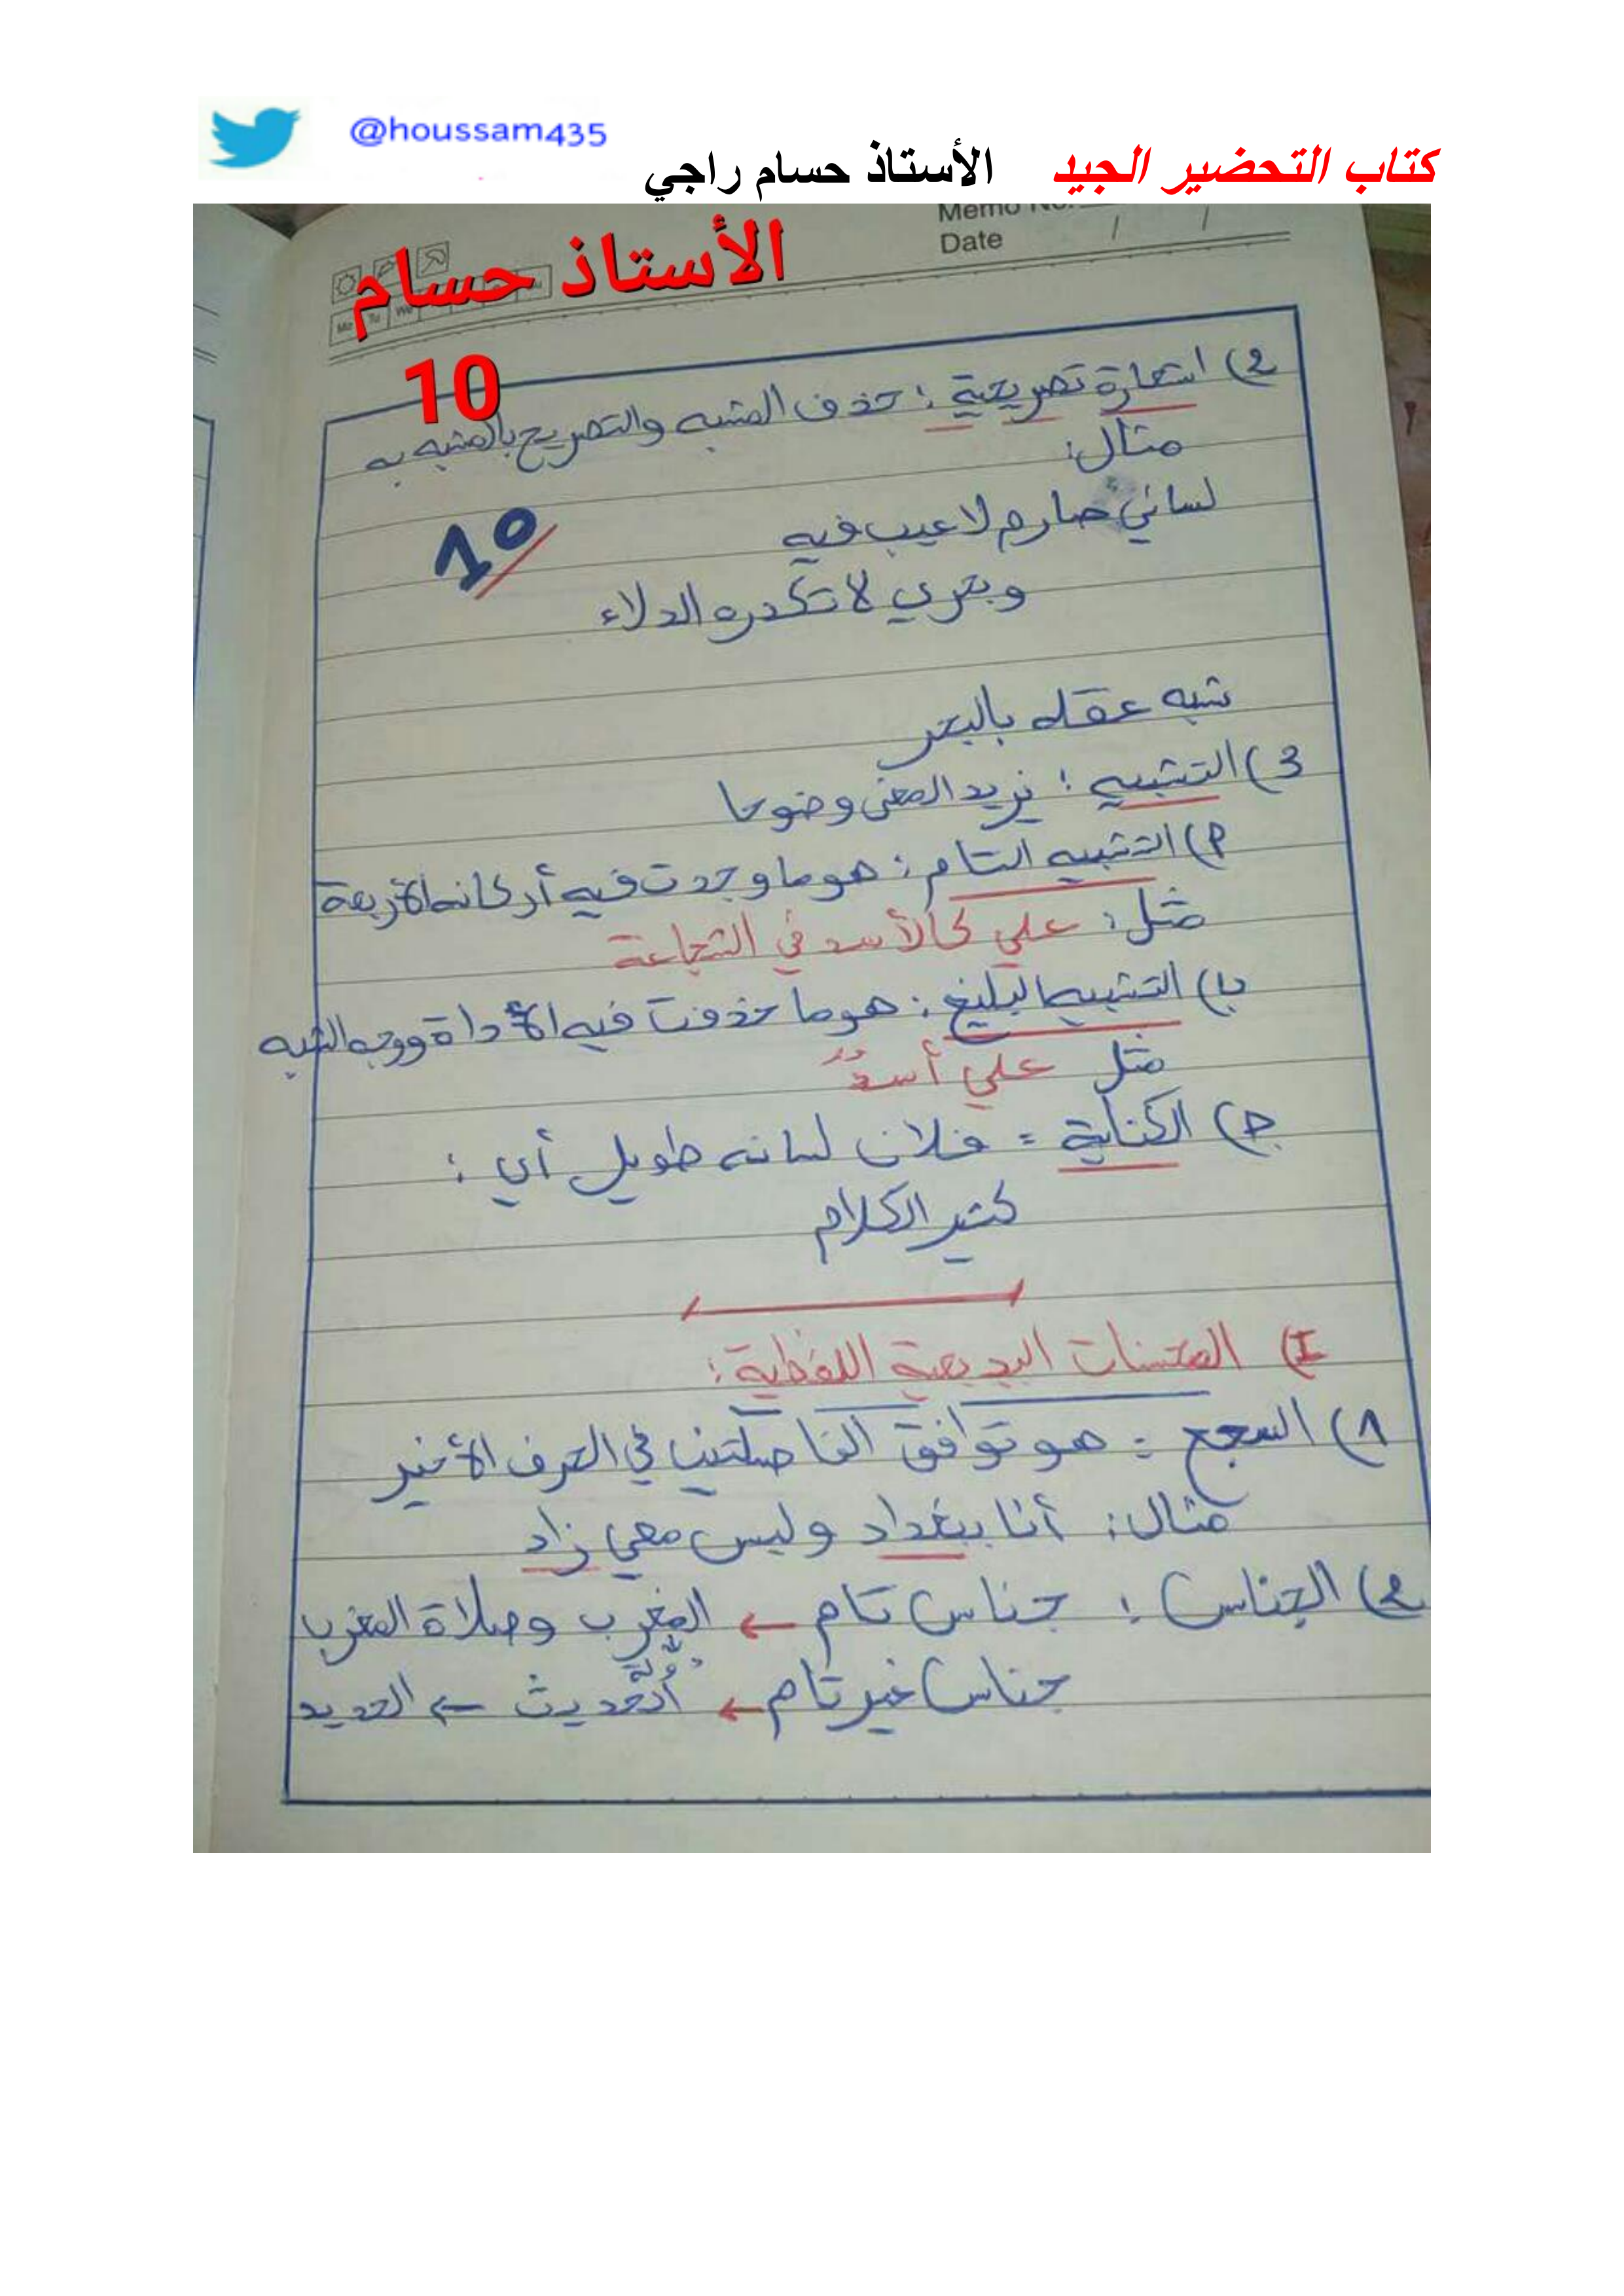 @houssam435
كتاب التحضير الجيد الأستاذ حسام راجي
Memo No.
Date / /
الأستاذ حسام
10
Mo Tu We
2) استعارة تصريحية : حذف المشبه والتصريح بالمشبه به
مثال:
لساني صارم لا عيب فيه
10
وبحري لا تكدره الدلاء
شبه عقله بالبحر
3) التشبيه : يزيد المعنى وضوحا
أ) التشبيه التام : هو ما وجدت فيه أركانه الأربعة
مثل : علي كالأسد في الشجاعة
ب) التشبيه البليغ : هو ما حذفت فيه الأداة ووجه الشبه
مثل علي أسدٌ
ج) الكناية = فلان لسانه طويل أي :
كثير الكلام
I) المحسنات البديعية اللفظية :
1) السجع : هو توافق الفاصلتين في الحرف الأخير
مثال : أنا ببغداد وليس معي زاد
2) الجناس : جناس تام ← المغرب وصلاة المغرب
دولة
جناس غير تام ← الحديث ← الحديد